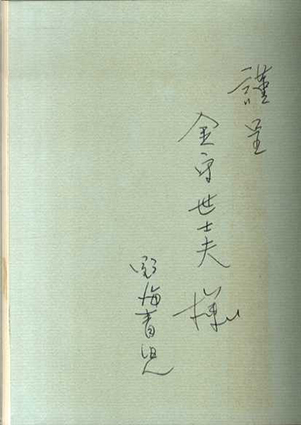 謹呈
金守世士夫様
野海青児